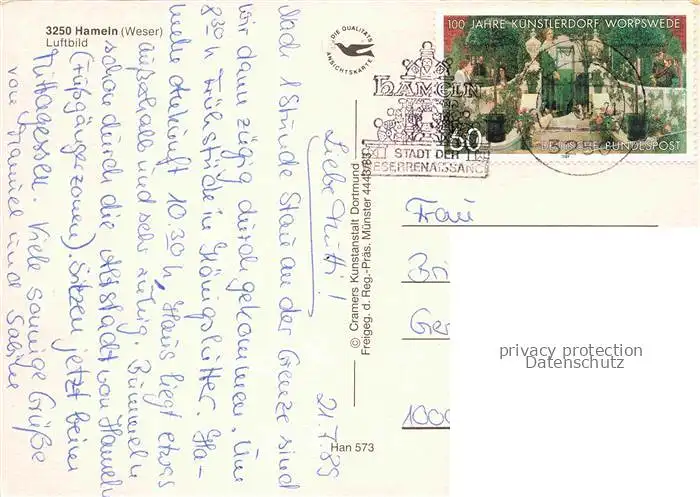 3250 Hameln (Weser)
Luftbild
DIE QUALITÄTS
ANSICHTSKARTE
HAMELN
STADT DER
ESERRENAISSANC
100 JAHRE KÜNSTLERDORF WORPSWEDE
60
DEUTSCHE BUNDESPOST
21.7.89
Liebe Mutti!
Nach 1 Stunde Stau an der Grenze sind
wir dann zügig durchgekommen. Um
8.30 h Frühstück in Königslutter. Ha-
meln Ankunft 10.30 h, Haus liegt etwas
außerhalb und sehr ruhig. Bummeln
schon durch die Altstadt von Hameln
(Fußgängerzonen). Sitzen jetzt beim
Mittagessen. Viele sonnige Grüße
von und Sabine
© Cramers Kunstanstalt Dortmund
Freigeg. d. Reg.-Präs. Münster
Han 573
Frau
Bri
Ger
1000
privacy protection
Datenschutz